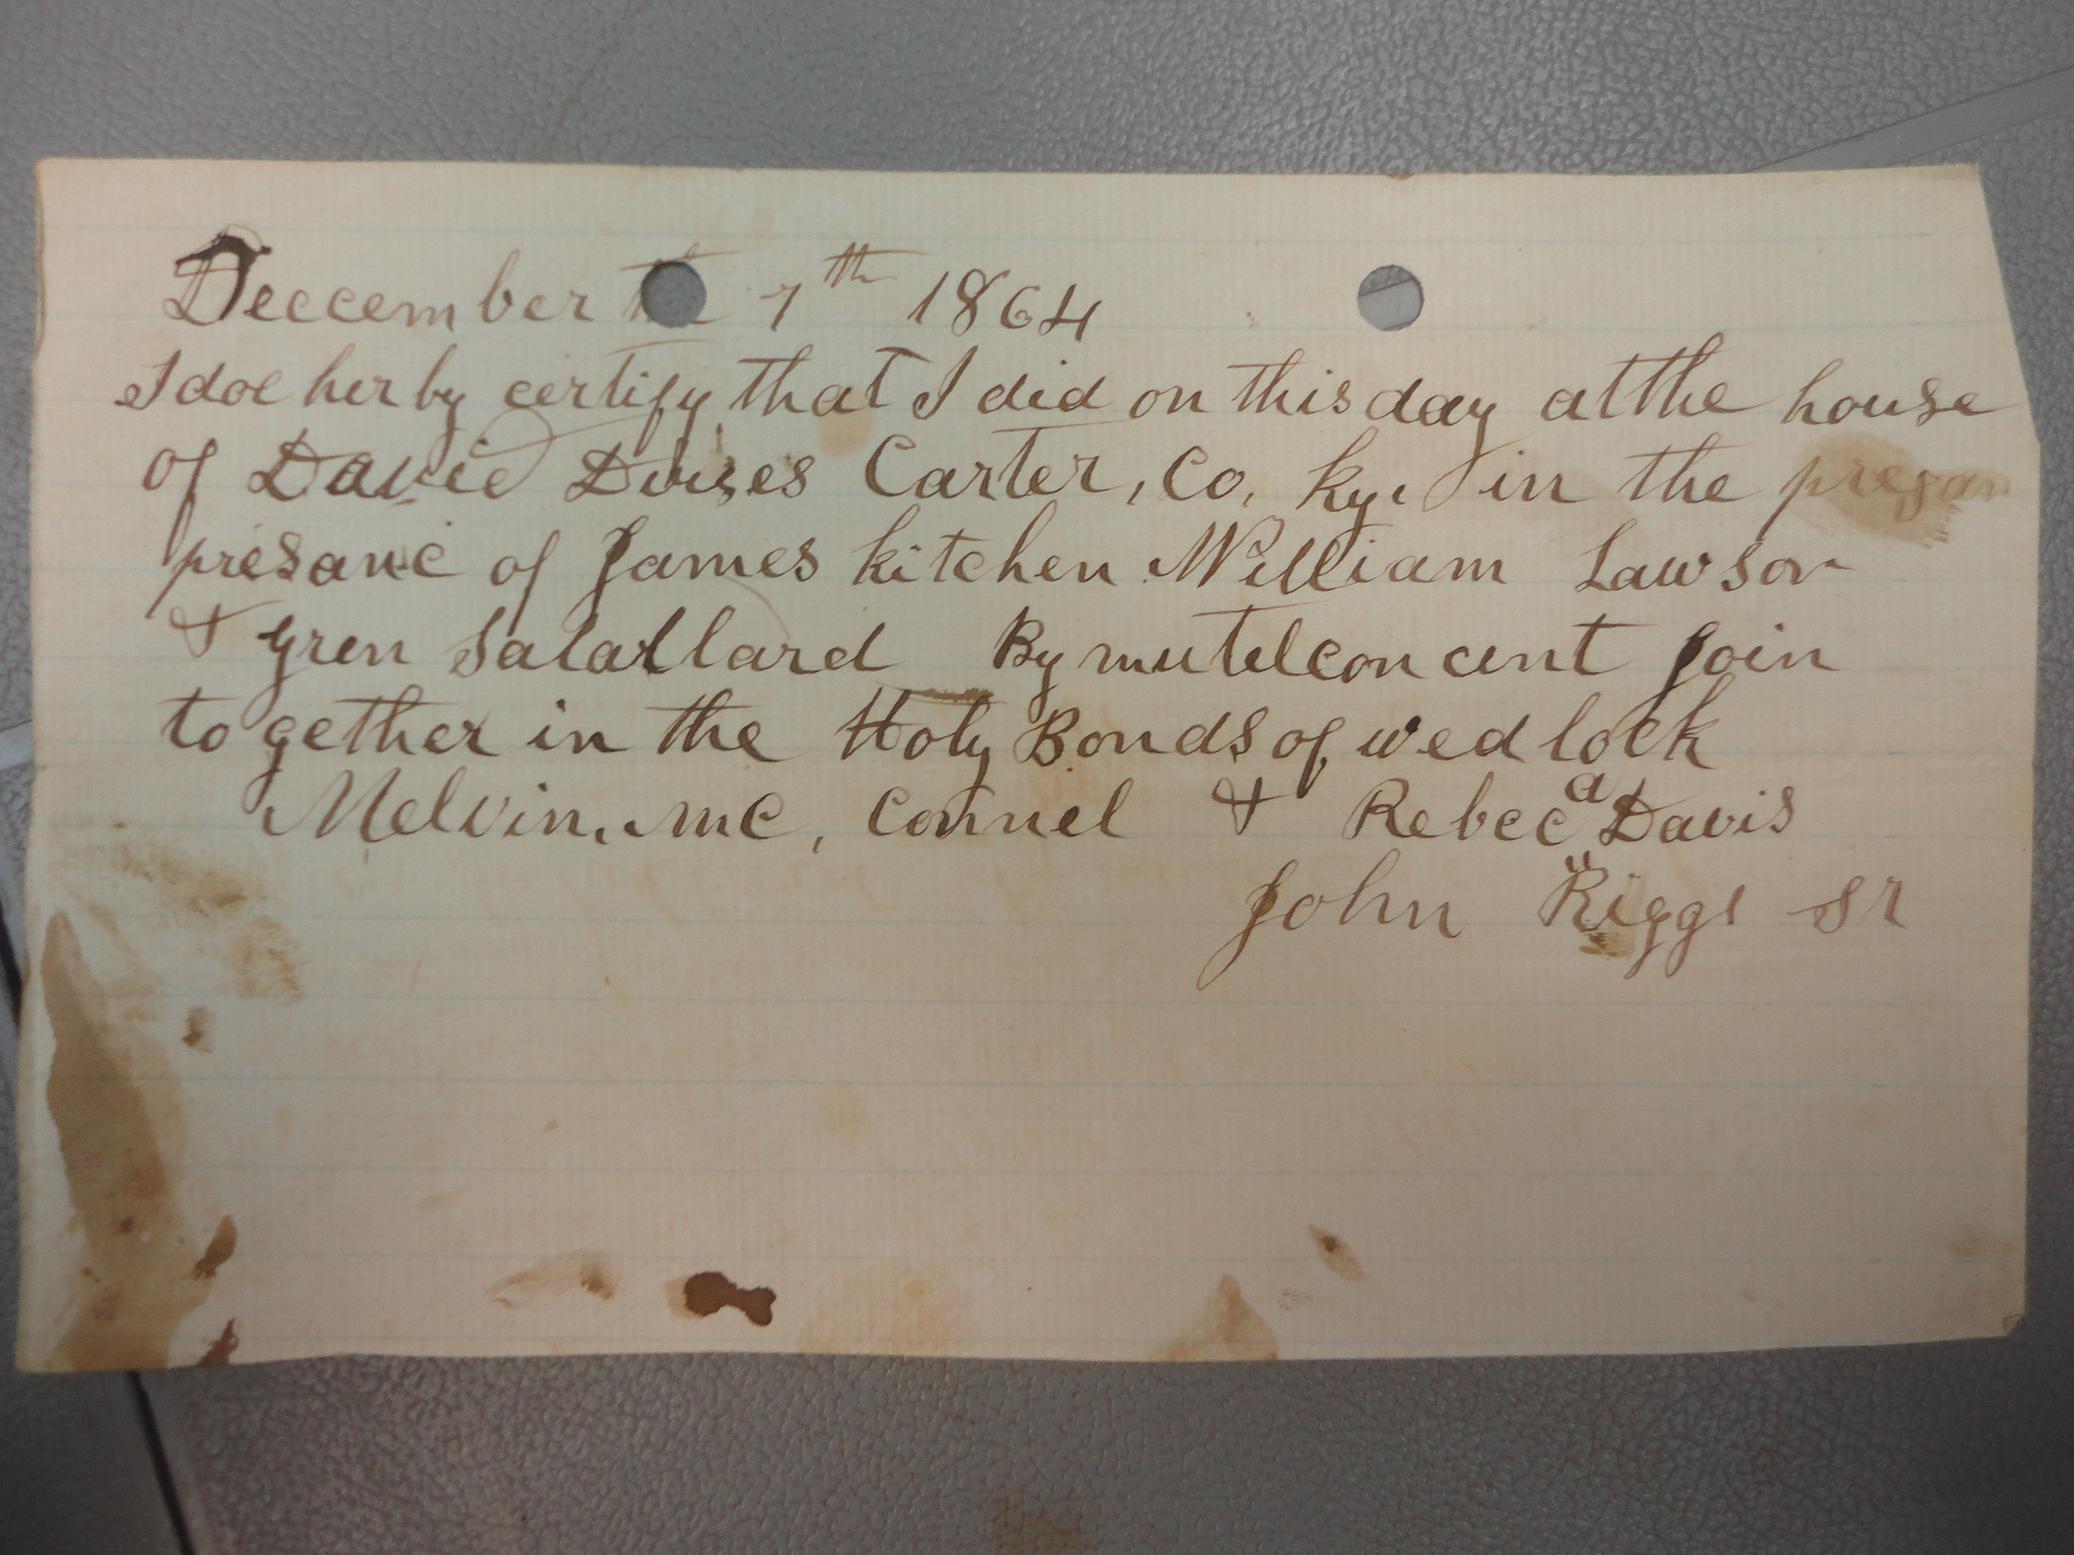 Deccember the 7th 1864
I doe her by certify that I did on this day at the house
of David Duises Carter, Co, Ky. in the presan
presance of James kitchen William Lawson
& gren Salallard By mutel concent Join
together in the Holy Bonds of wedlock
Melvin. mc, Connel & Rebeca Davis
John Riggs sr